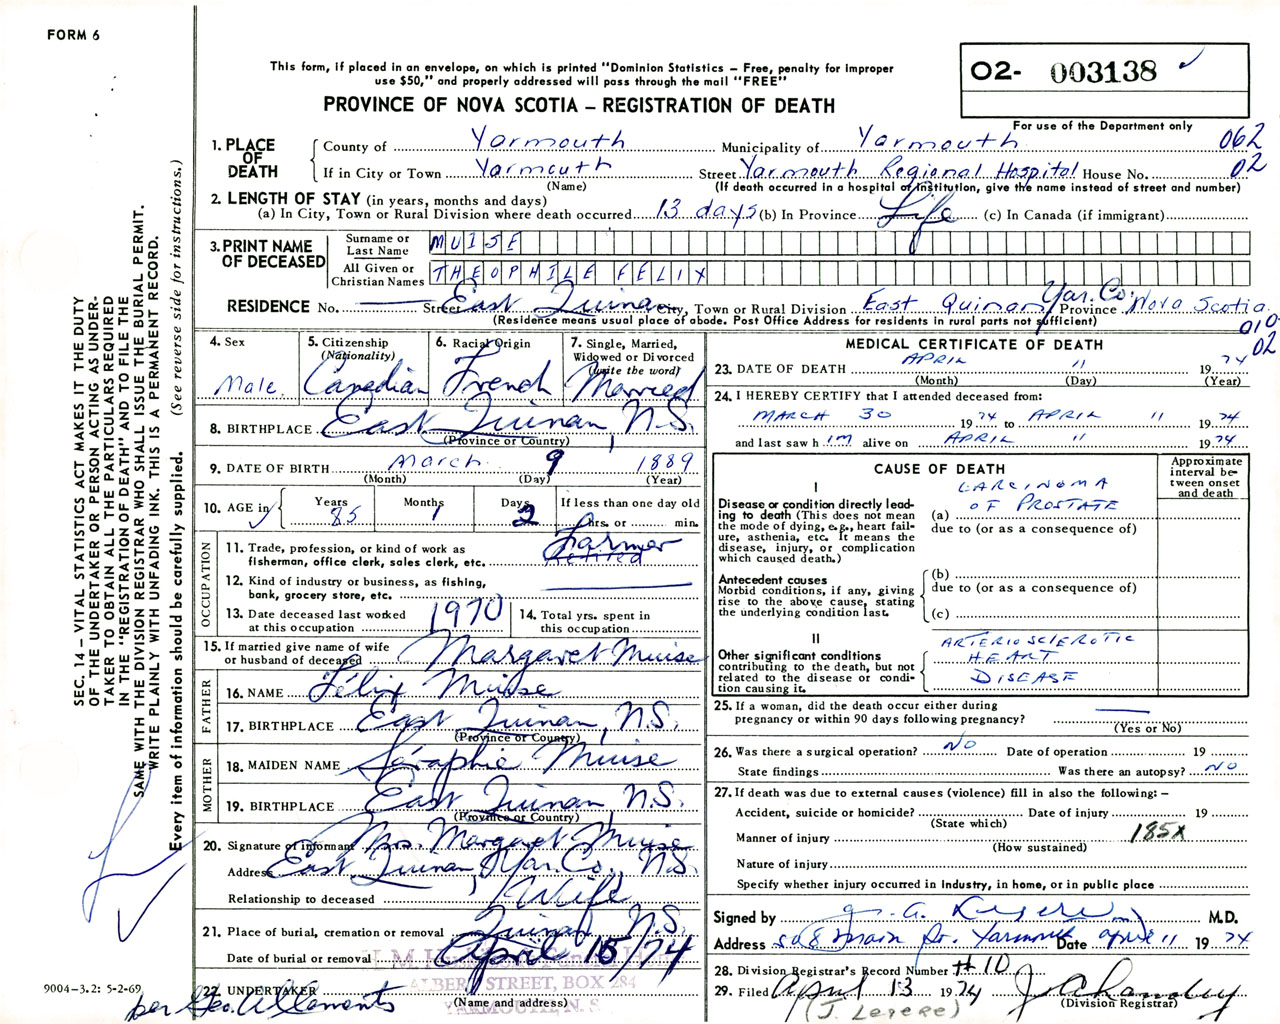 FORM 6
This form, if placed in an envelope, on which is printed "Dominion Statistics – Free, penalty for improper
use $50," and properly addressed will pass through the mail "FREE"
PROVINCE OF NOVA SCOTIA – REGISTRATION OF DEATH
02- 003138
For use of the Department only
062
02
1. PLACE OF DEATH
County of Yarmouth Municipality of Yarmouth
If in City or Town Yarmouth Street Yarmouth Regional Hospital House No.
(Name) (If death occurred in a hospital or institution, give the name instead of street and number)
2. LENGTH OF STAY (in years, months and days)
(a) In City, Town or Rural Division where death occurred 13 days (b) In Province Life (c) In Canada (if immigrant)
3. PRINT NAME OF DECEASED
Surname or Last Name MUISE
All Given or Christian Names THEOPHILE FELIX
RESIDENCE No. Street East Quinan City, Town or Rural Division East Quinan Yar. Co. Province Nova Scotia
(Residence means usual place of abode. Post Office Address for residents in rural parts not sufficient)
010
02
4. Sex Male
5. Citizenship (Nationality) Canadian
6. Racial Origin French
7. Single, Married, Widowed or Divorced (write the word) Married
8. BIRTHPLACE East Quinan, N.S.
(Province or Country)
9. DATE OF BIRTH March 9 1889
(Month) (Day) (Year)
10. AGE in Years 85 Months 1 Days 2 If less than one day old hrs. or min.
OCCUPATION
11. Trade, profession, or kind of work as fisherman, office clerk, sales clerk, etc. Farmer Retired
12. Kind of industry or business, as fishing, bank, grocery store, etc.
13. Date deceased last worked at this occupation 1970
14. Total yrs. spent in this occupation
15. If married give name of wife or husband of deceased Margaret Muise
FATHER
16. NAME Félix Muise
17. BIRTHPLACE East Quinan, N.S.
(Province or Country)
MOTHER
18. MAIDEN NAME Séraphie Muise
19. BIRTHPLACE East Quinan, N.S.
(Province or Country)
20. Signature of informant Mrs. Margaret Muise
Address East Quinan, Yar. Co., N.S.
Relationship to deceased Wife
21. Place of burial, cremation or removal Quinan, N.S.
Date of burial or removal April 15/74
22. UNDERTAKER
(Name and address)
ALBERT STREET, BOX 284
YARMOUTH, N.S.
per Geo. A. Clements
9004-3.2: 5-2-69
MEDICAL CERTIFICATE OF DEATH
23. DATE OF DEATH APRIL 11 1974
(Month) (Day) (Year)
24. I HEREBY CERTIFY that I attended deceased from:
MARCH 30 1974 to APRIL 11 1974
and last saw h im alive on APRIL 11 1974
CAUSE OF DEATH
Approximate interval between onset and death
I
Disease or condition directly leading to death (This does not mean the mode of dying, e.g., heart failure, asthenia, etc. It means the disease, injury, or complication which caused death.)
(a) CARCINOMA OF PROSTATE
due to (or as a consequence of)
Antecedent causes
Morbid conditions, if any, giving rise to the above cause, stating the underlying condition last.
(b)
due to (or as a consequence of)
(c)
II
Other significant conditions contributing to the death, but not related to the disease or condition causing it.
ARTERIOSCLEROTIC
HEART
DISEASE
25. If a woman, did the death occur either during pregnancy or within 90 days following pregnancy?
(Yes or No)
26. Was there a surgical operation? NO Date of operation 19
State findings Was there an autopsy? NO
27. If death was due to external causes (violence) fill in also the following: –
Accident, suicide or homicide? Date of injury 19
(State which)
Manner of injury 185X
(How sustained)
Nature of injury
Specify whether injury occurred in industry, in home, or in public place
Signed by M.D.
Address 508 Main St. Yarmouth Date April 11 1974
28. Division Registrar's Record Number #10
29. Filed April 13 1974
(Division Registrar)
SEC. 14 – VITAL STATISTICS ACT MAKES IT THE DUTY
OF THE UNDERTAKER OR PERSON ACTING AS UNDER-
TAKER TO OBTAIN ALL THE PARTICULARS REQUIRED
IN THE "REGISTRATION OF DEATH" AND TO FILE THE
SAME WITH THE DIVISION REGISTRAR WHO SHALL ISSUE THE BURIAL PERMIT.
WRITE PLAINLY WITH UNFADING INK. THIS IS A PERMANENT RECORD.
Every item of information should be carefully supplied. (See reverse side for instructions.)